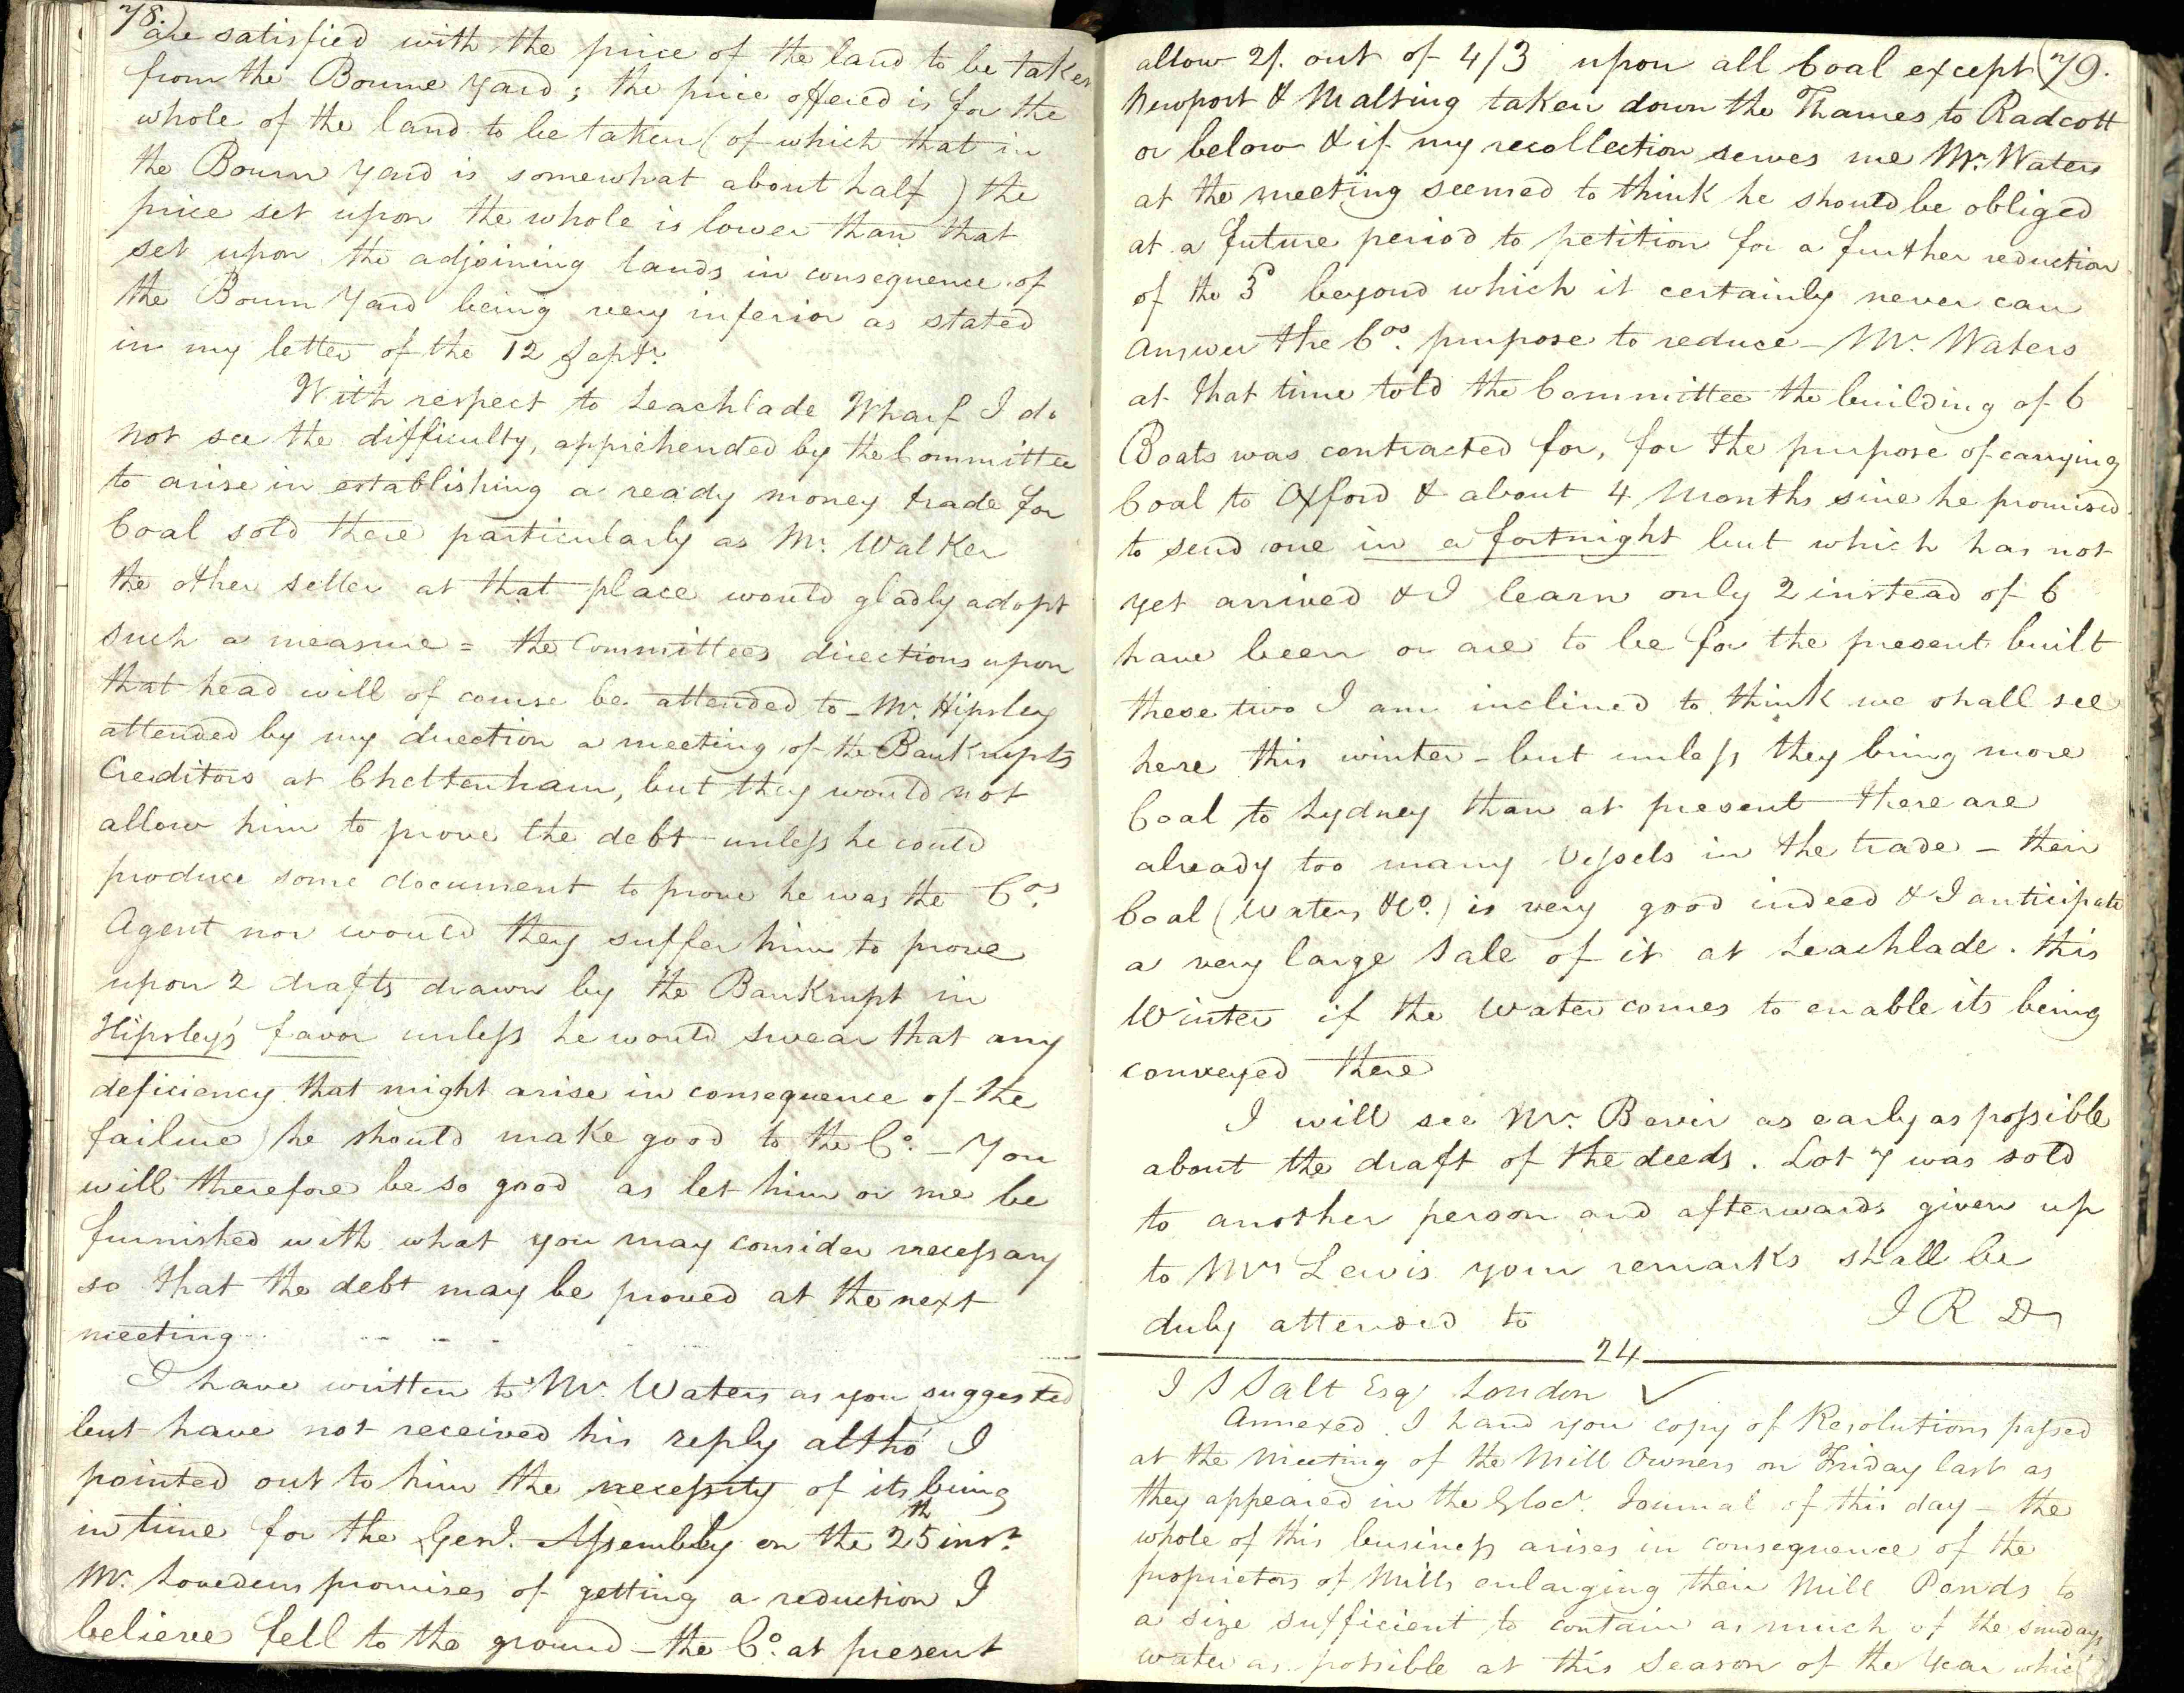 78.)
are satisfied with the price of the land to be taken
from the Bourne Yard; the price offered is for the
whole of the land to be taken (of which that in
the Bourn Yard is somewhat about half) the
price set upon the whole is lower than that
set upon the adjoining lands in consequence of
the Bourn Yard being very inferior as stated
in my letter of the 12 Septr.
With respect to Leachlade Wharf I do
not see the difficulty, apprehended by the Committee
to arise in establishing a ready money trade for
Coal sold there particularly as Mr. Walker
the other seller at that place would gladly adopt
such a measure = the Committees directions upon
that head will of course be attended to - Mr. Hipsley
attended by my direction a meeting of the Bankrupts
Creditors at Cheltenham, but they would not
allow him to prove the debt unless he could
produce some document to prove he was the Cos.
Agent nor would they suffer him to prove
upon 2 drafts drawn by the Bankrupt in
Hipsley's favor unless he would swear that any
deficiency that might arise in consequence of the
failure) he should make good to the Co. - You
will therefore be so good as let him or me be
furnished with what you may consider necessary
so that the debt may be proved at the next
meeting
I have written to Mr. Waters as you suggested
but have not received his reply altho' I
pointed out to him the necessity of its being
in time for the Genl. Assembly on the 25th inst.
Mr. Lovedens promises of getting a reduction I
believe fell to the ground - the Co. at present
(79.
allow 2/. out of 4/3 upon all Coal except
Newport & Malting taken down the Thames to Radcott
or below & if my recollection serves me Mr. Waters
at the meeting seemed to think he should be obliged
at a future period to petition for a further reduction
of the 3d beyond which it certainly never can
answer the Cos. purpose to reduce - Mr. Waters
at that time told the Committee the building of 6
Boats was contracted for, for the purpose of carrying
Coal to Oxford & about 4 Months since he promised
to send one in a fortnight but which has not
yet arrived & I learn only 2 instead of 6
have been or are to be for the present built
these two I am inclined to think we shall see
here this winter - but unless they bring more
Coal to Lydney than at present there are
already too many Vessels in the trade - their
Coal (Waters & Co.) is very good indeed & I anticipate
a very large Sale of it at Leachlade. this
Winter if the water comes to enable its being
conveyed there
I will see Mr. Bevir as early as possible
about the draft of the deeds. Lot 7 was sold
to another person and afterwards given up
to Mrs Lewis your remarks shall be
duly attended to I R D
24
I S Salt Esqr London ✓
Annexed I hand you copy of Resolutions passed
at the Meeting of the Mill Owners on Friday last as
they appeared in the Glocr. Journal of this day - the
whole of this business arises in consequence of the
proprietors of Mills enlarging their Mill Ponds to
a size sufficient to contain as much of the sundays
water as possible at this Season of the Year which